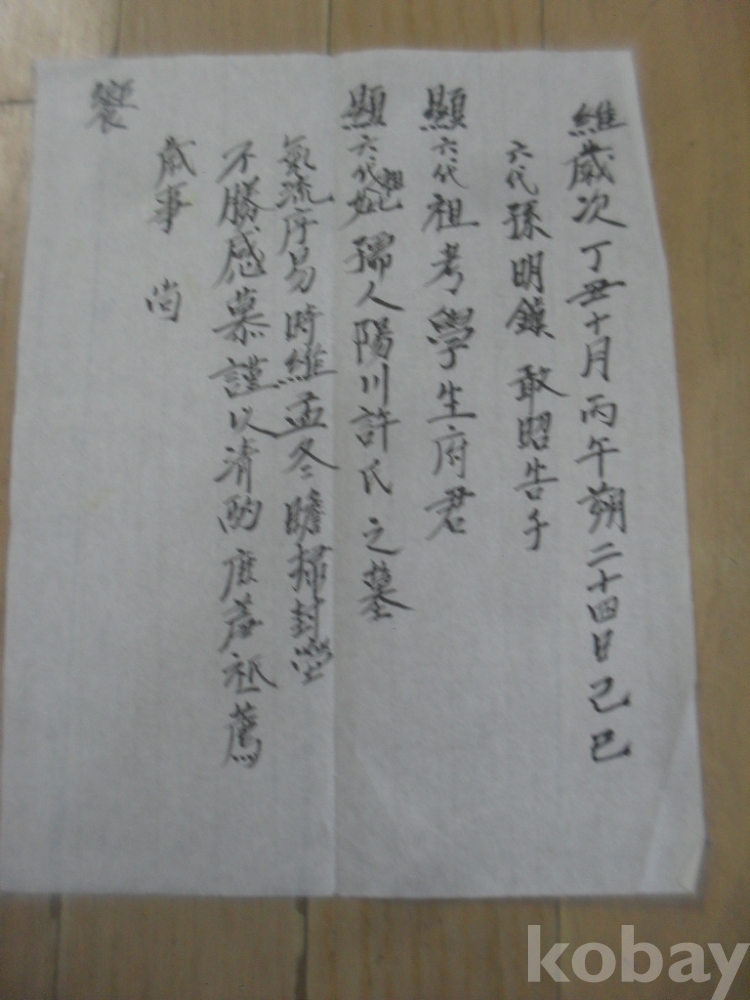 維歲次丁丑十月丙午朔二十四日己巳
六代孫明鎬 敢昭告于
顯六代祖考學生府君
顯六代祖妣孺人陽川許氏之墓
氣流序易時維孟冬瞻掃封塋
不勝感慕謹以清酌庶羞祗薦
歲事 尚
饗
kobay